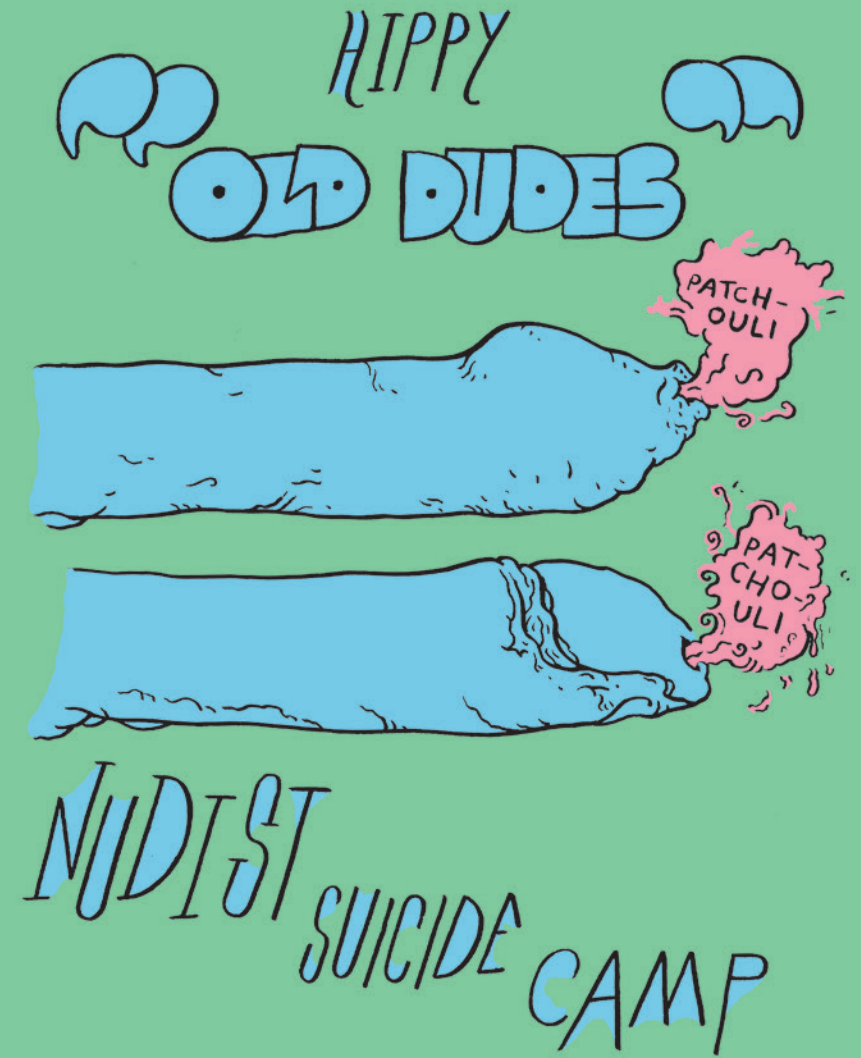 HIPPY
"OLD DUDES"
PATCH-
OULI
PAT-
CHO-
ULI
NUDIST
SUICIDE
CAMP